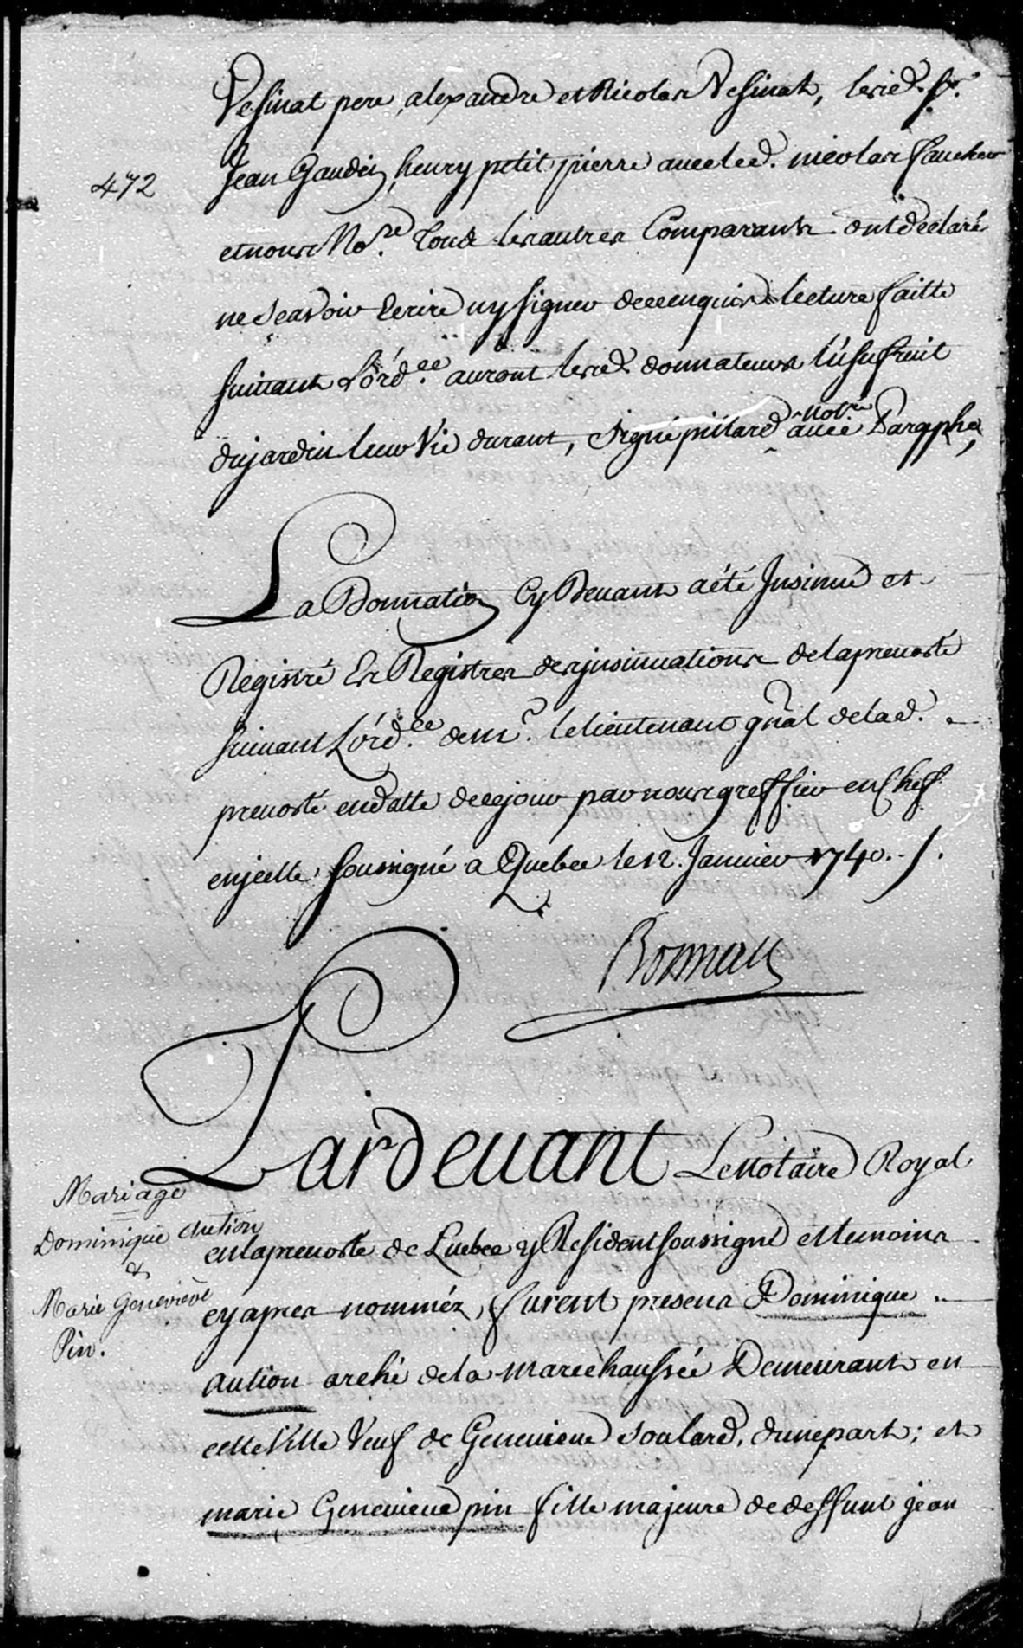 Vesinat pere, alexandre et Nicolas Vesinat, lesd. Srs.
Jean Gaudin, henry petit pierre avec led. nicolas faucher
472
et nous Nore. Tous les autres Comparants ont declaré
ne scavoir Ecrire ny signer de ce enquis lecture faitte
suivant L'ordce. auront lesd. donnateurs L'usufruit
du jardin leur Vie durant, signé pillard notre avec Paraphe,
La Donnation Cy Devant a été Insinué et
Registré Es Registres des insinuations de la prevosté
suivant L'ordce. de mr. le lieutenant gnal de lad.
prevosté en datte de ce jour par nous greffier en Chef
en jcelle soussigné a Quebec le 12. Janvier 1740. /.
Boisseau
Pardevant Le notaire Royal
Mariage
Dominique Aution
&
Marie Geneviève
Pin.
en la prevosté de Quebec y Resident soussigné et temoins
cy apres nommés, furent presens Dominique
aution arché de la marechaussée Demeurant en
cette Ville Veuf de Genevieve soulard, d'une part; et
marie Genevieve pin fille majeure de deffunt jean